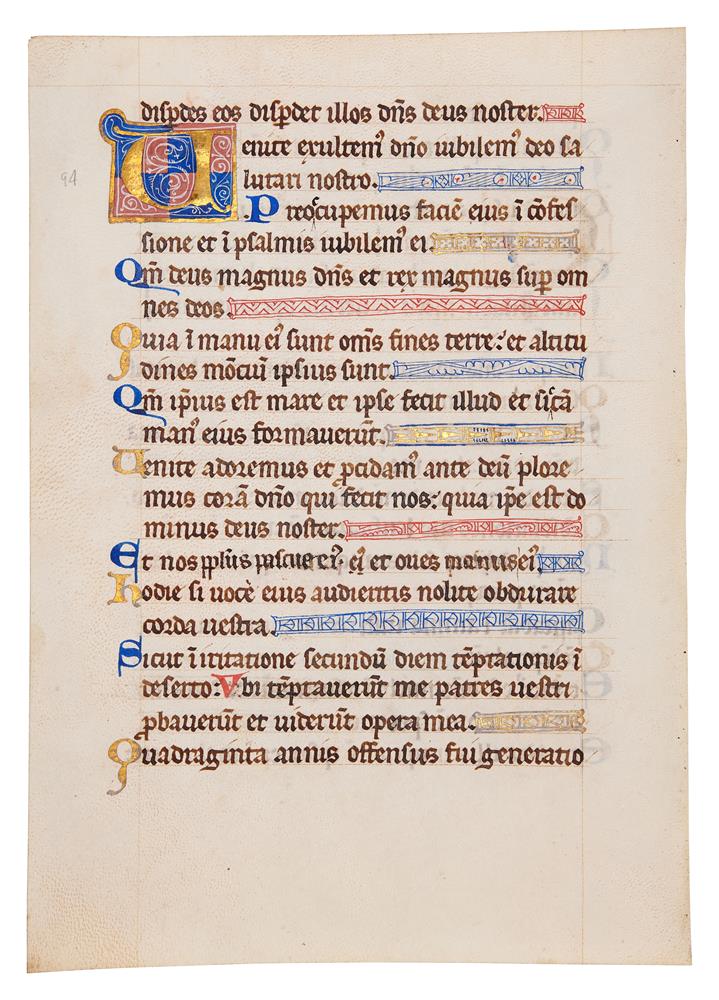 disp̱des eos disp̱det illos dn̄s deus noster.
Uenite exultemꝰ dn̄o iubilemꝰ deo sa
lutari nostro.
94
Preocͨupemus faciē eius ī cōfes
sione et ī psalmis iubilemꝰ ei.
Qm̄ deus magnus dn̄s et rex magnus sup̱ om
nes deos.
Quia ī manu eiꝰ sunt om̄s fines terre: et altitu
dines mōciū ipsius sunt.
Qm̄ ip̄ius est mare et ipse fecit illud et siccā
manꝰ eius formauerūt.
Uenite adoremus et p̱cidamꝰ ante deū plore
mus corā dn̄o qui fecit nos: quia ip̄e est do
minus deus noster.
Et nos pplūs pascue eiꝰ. et oues manus eiꝰ
hodie si uocē eius audieritis nolite obdurare
corda uestra.
Sicut ī iritatione secundū diem tēptationis ī
deserto: Vbi tēptauerūt me patres uestri
ꝓbauerūt et uiderūt opera mea.
Quadraginta annis offensus fui generatio